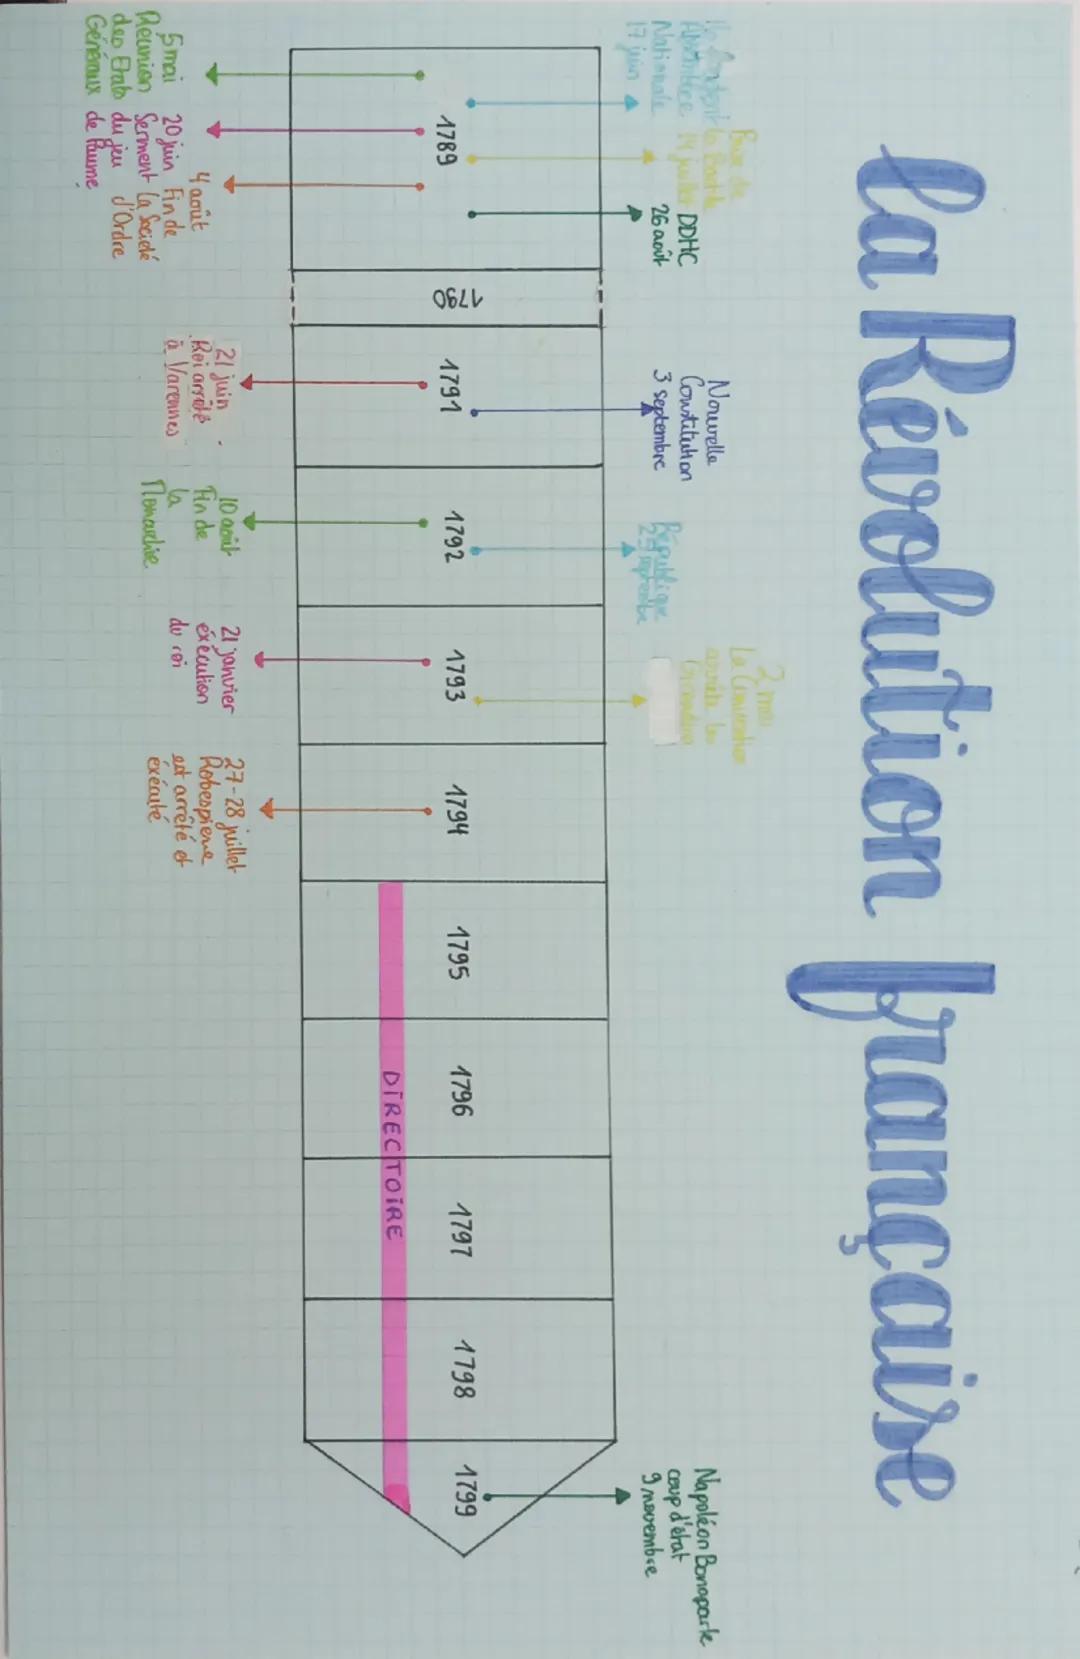 La Révolution française
Assemblée
Nationale
17 juin
Prise de
la Bastille
14 juillet
DDHC
26 août
Nouvelle
Constitution
3 septembre
République
septembre
2 mai
La Convention
arrête les
Girondins
Napoléon Bonaparte
coup d'état
9 novembre
1789
1790
1791
1792
1793
1794
1795
1796
1797
1798
1799
DIRECTOIRE
5 mai
Réunion
des Etats
Généraux
20 juin
Serment
du jeu
de Paume
4 août
Fin de
la Société
d'Ordre
21 juin
Roi arrêté
à Varennes
10 août
Fin de
la
Monarchie
21 janvier
éxécution
du roi
27-28 juillet
Robespierre
est arrêté et
exécuté